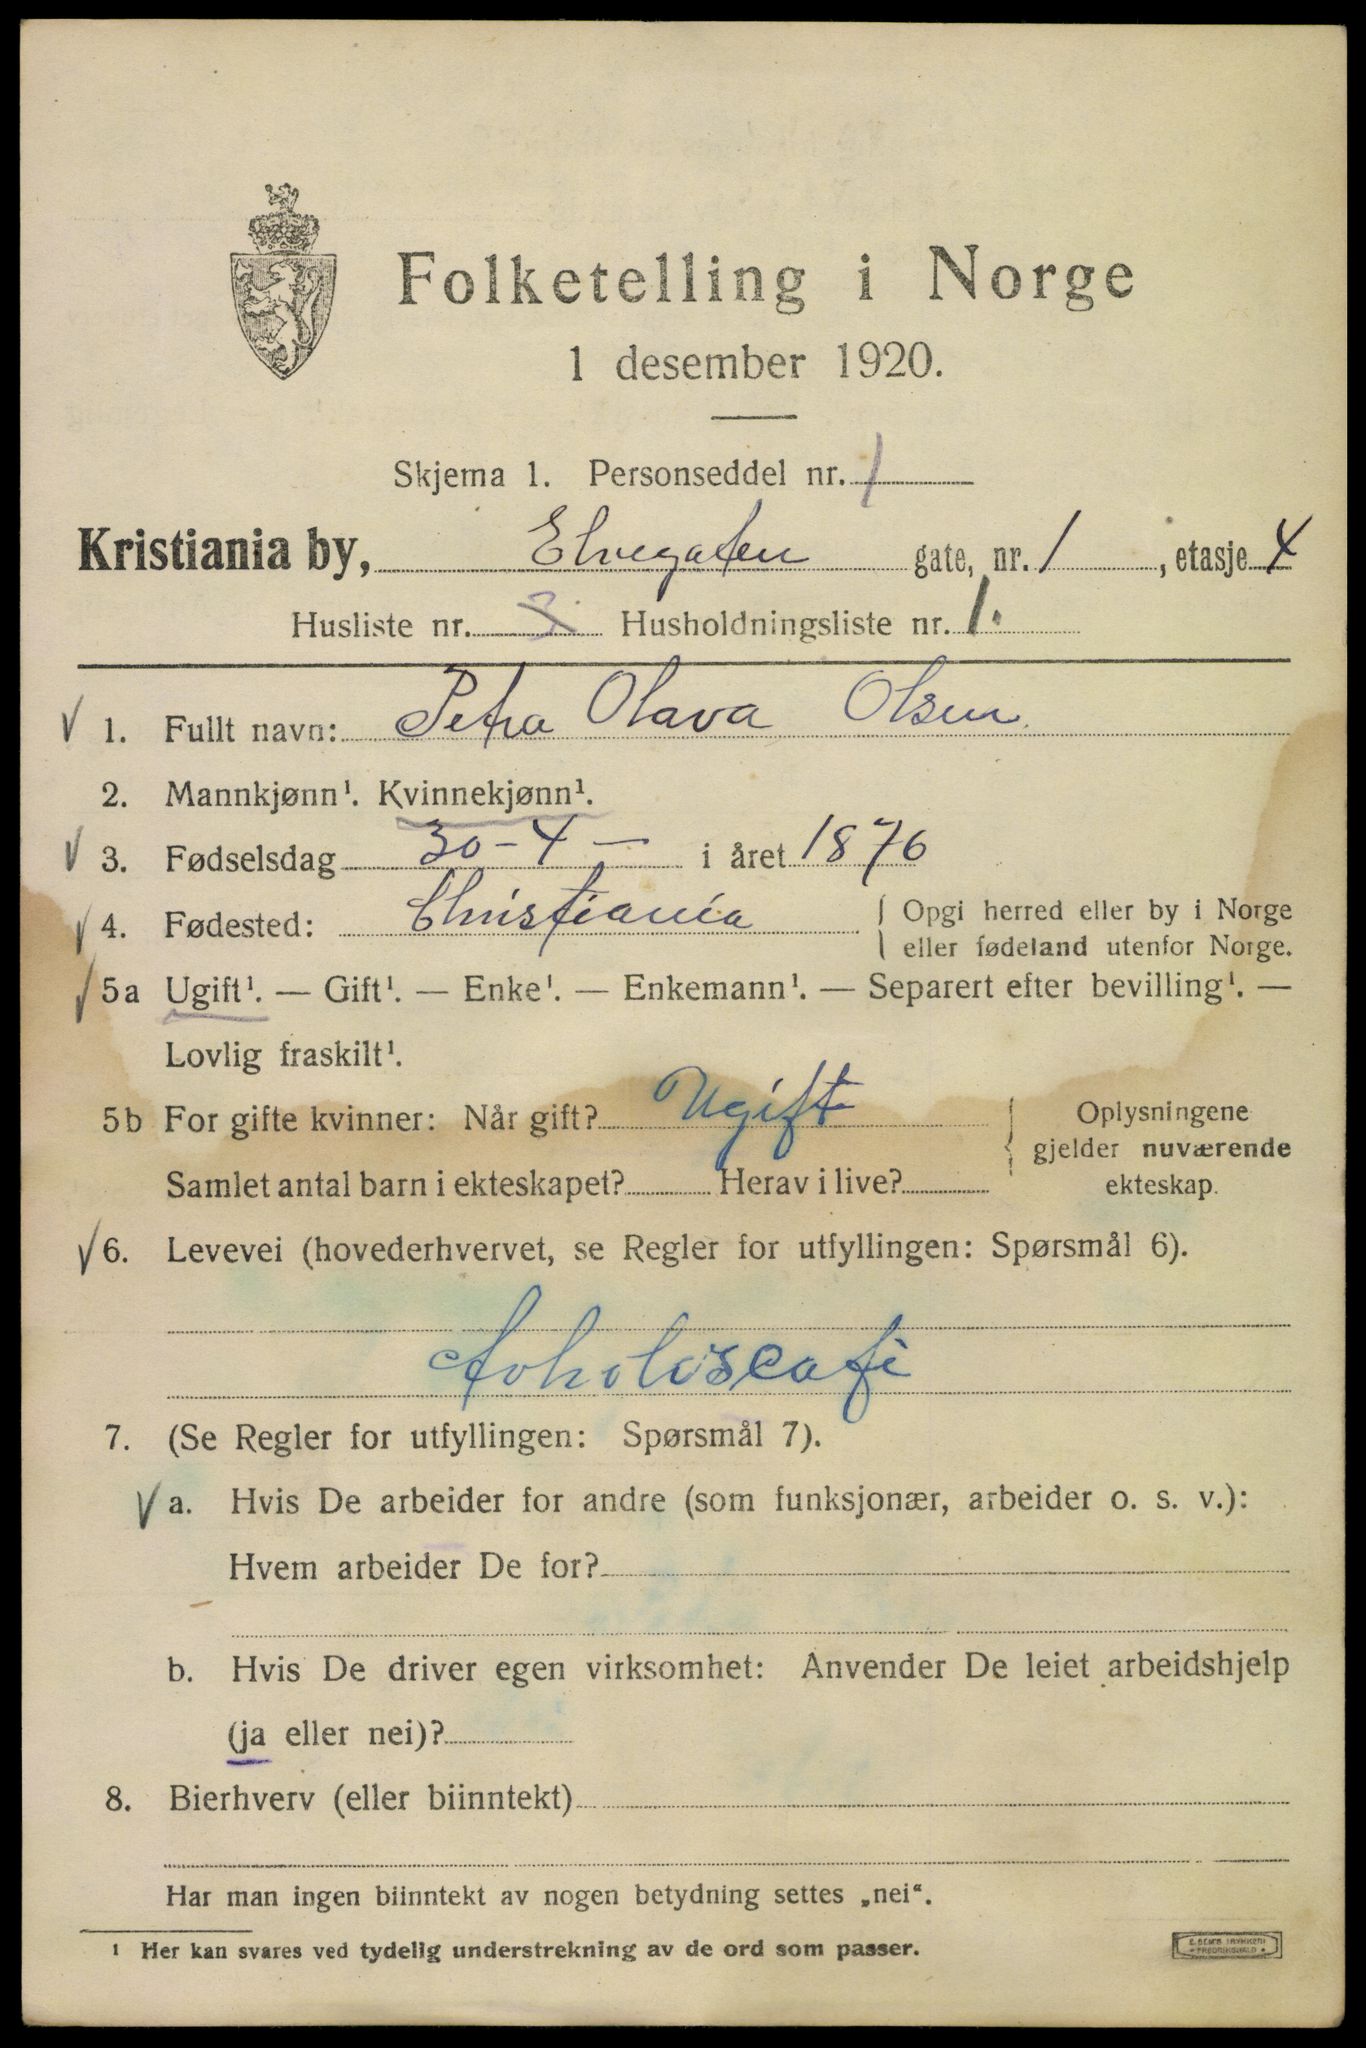 Folketelling i Norge
1 desember 1920.
Skjema 1. Personseddel nr. 1
Kristiania by, Elvegaten gate, nr. 1, etasje 4
Husliste nr. 3 Husholdningsliste nr. 1.
1. Fullt navn: Petra Olava Olsen
2. Mannkjønn¹. Kvinnekjønn¹.
3. Fødselsdag 30-4- i året 1876
4. Fødested: Christiania { Opgi herred eller by i Norge
eller fødeland utenfor Norge.
5a Ugift¹. — Gift¹. — Enke¹. — Enkemann¹. — Separert efter bevilling¹. —
Lovlig fraskilt¹.
5b For gifte kvinner: Når gift? Ugift } Oplysningene
gjelder nuværende
Samlet antal barn i ekteskapet? Herav i live? ekteskap.
6. Levevei (hovederhvervet, se Regler for utfyllingen: Spørsmål 6).
7. (Se Regler for utfyllingen: Spørsmål 7).
a. Hvis De arbeider for andre (som funksjonær, arbeider o. s. v.):
Hvem arbeider De for?
b. Hvis De driver egen virksomhet: Anvender De leiet arbeidshjelp
(ja eller nei)?
8. Bierhverv (eller biinntekt)
Har man ingen biinntekt av nogen betydning settes „nei“.
¹ Her kan svares ved tydelig understrekning av de ord som passer.